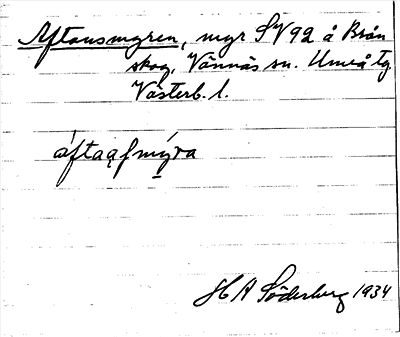 Aftonsmyren, myr SV92 å Brån
skog, Vännäs sn. Umeå tg
Västerb. l.
áftaąſmýra
H A Söderberg 1934